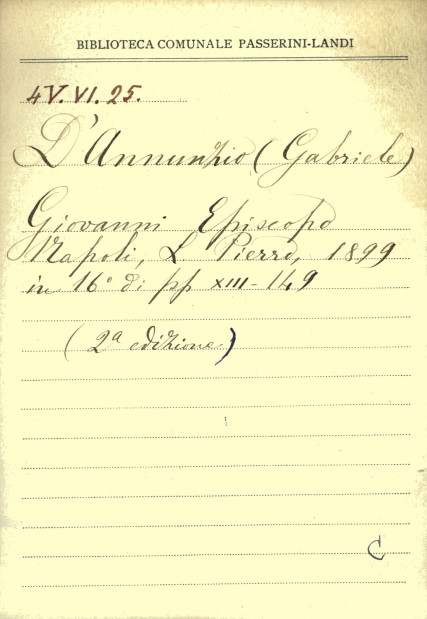 BIBLIOTECA COMUNALE PASSERINI-LANDI
4V.VI.25.
D'Annunzio (Gabriele)
Giovanni Episcopo
Napoli, L. Pierro, 1899
in 16° di pp XIII-149
(2ª edizione)
C